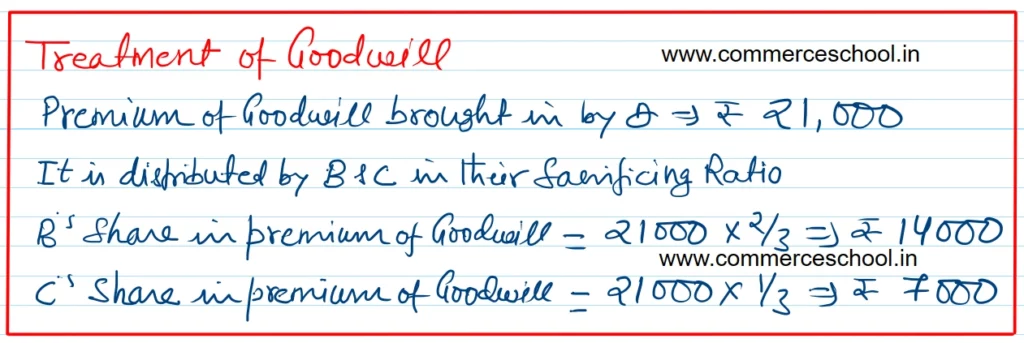 Treatment of Goodwill
www.commerceschool.in
Premium of Goodwill brought in by D ⇒ ₹ 21,000
It is distributed by B & C in their Sacrificing Ratio
B's Share in premium of Goodwill = 21000 x 2/3 ⇒ ₹ 14000
www.commerceschool.in
C's Share in premium of Goodwill = 21000 x 1/3 ⇒ ₹ 7000